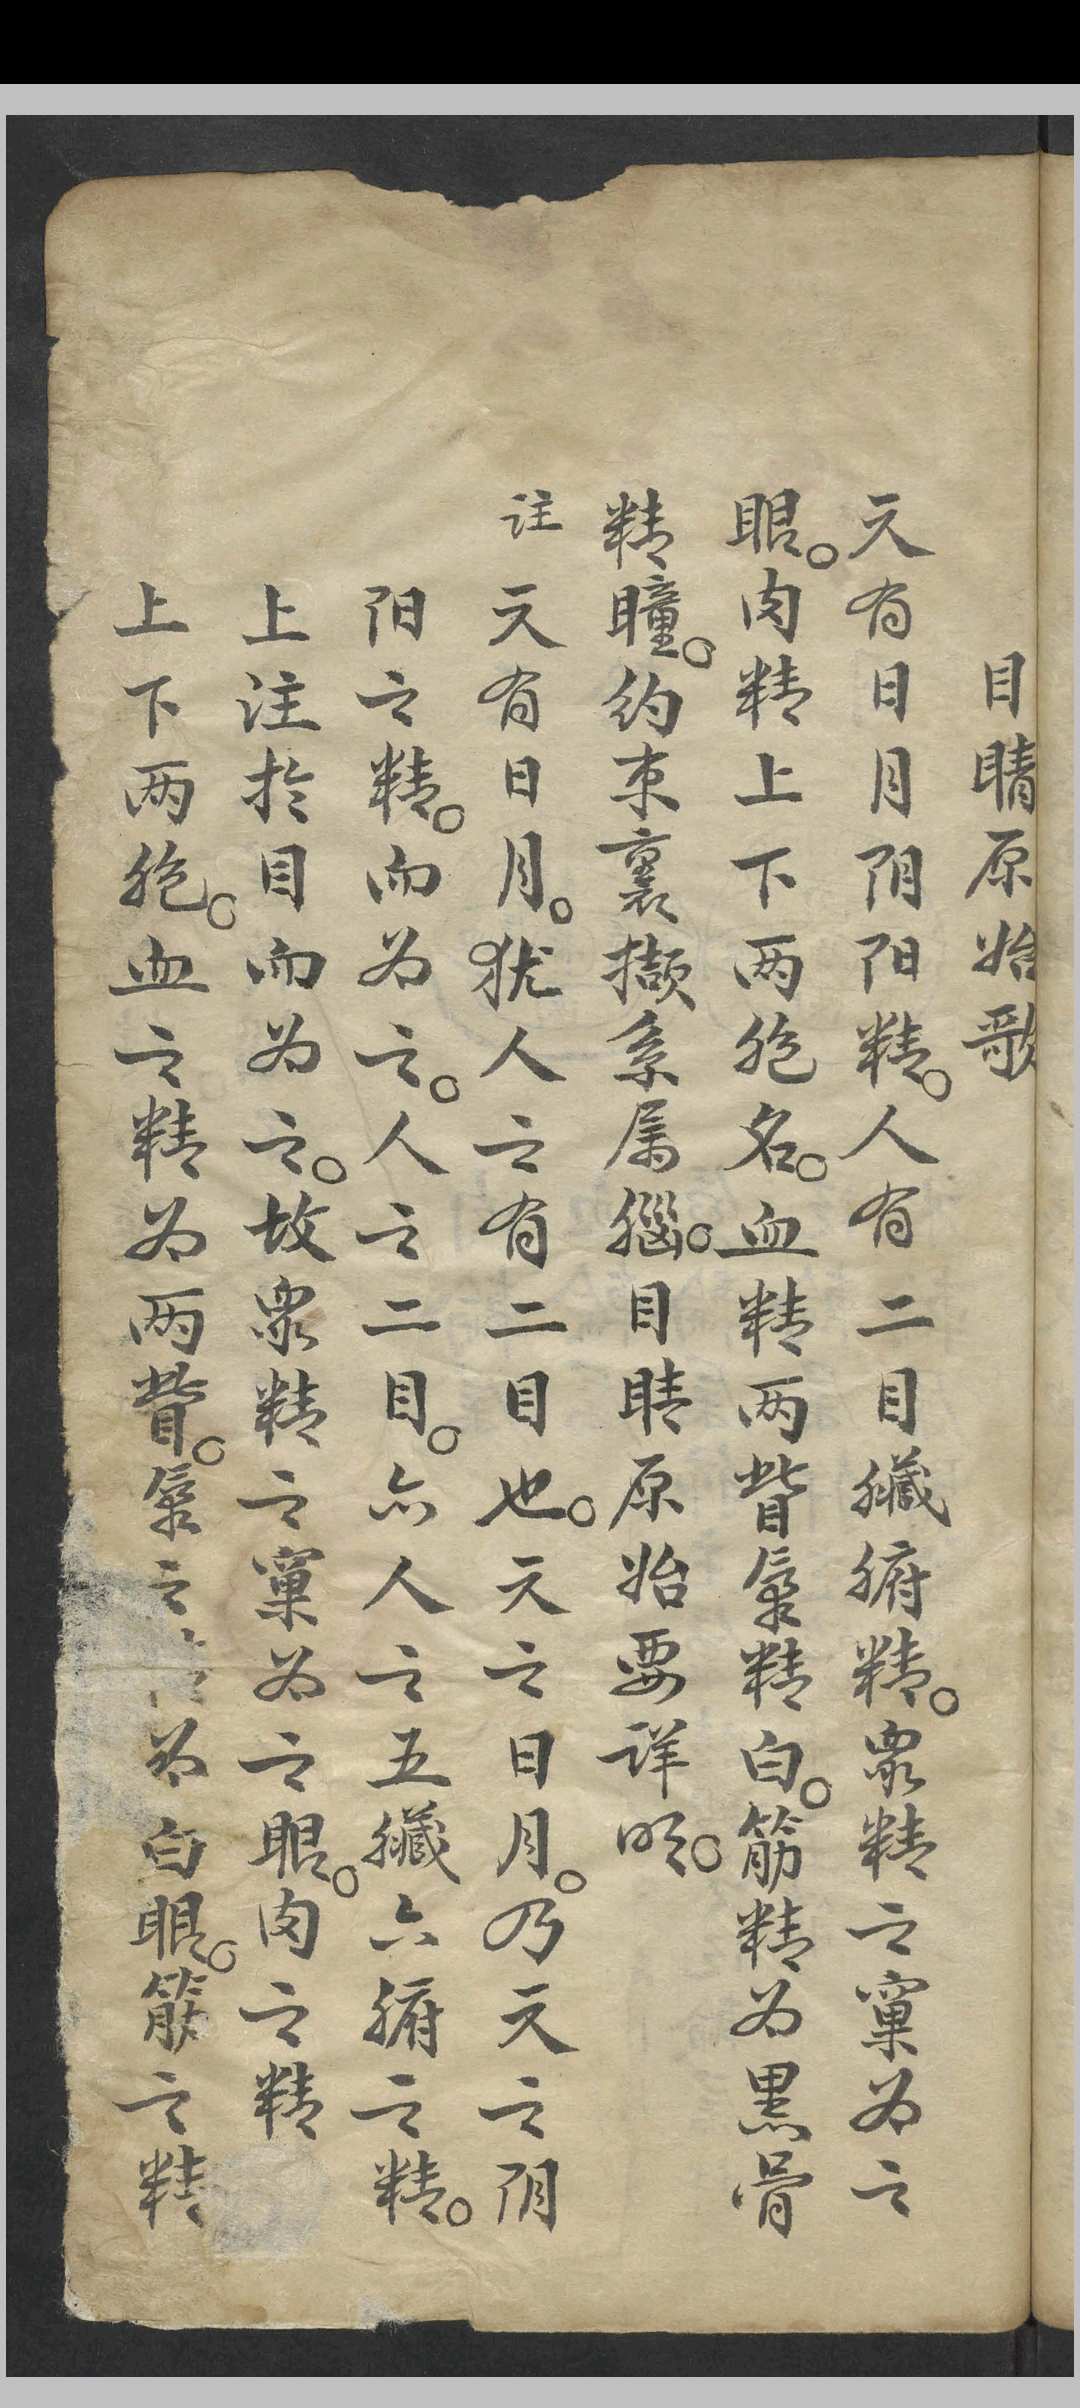 目睛原始歌
天有日月阴阳精。人有二目臟腑精。众精之窠为之
眼。肉精上下两胞名。血精两眥氣精白。筋精为黑骨
精瞳。约束裏擷系属腦。目睛原始要详明。
註 天有日月。犹人之有二目也。天之日月。乃天之阴
阳之精。而为之。人之二目。亦人之五臟六腑之精。
上注於目而为之。故众精之窠为之眼。肉之精
上下两胞。血之精为两眥。氣之為白眼。筋之精